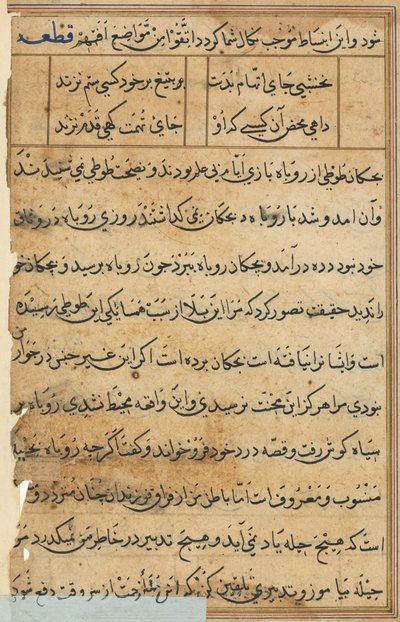 شود و این انبساط موجب سکال شما کردد اتقوا من مواضع التهم قطعه
نخشبی جای اتهام بدست بر تیغ بر خود کسی ستم نزند
داهی محض آن کسی که او جای تهمت کهی قدم نزند
بچکان طوطی از روباه بازی ایام بی علم بودند و نصحت طوطی نمی شنیدند
و آن امد و شد با روباه بچکان نمی کذاشتند روزی روباه در وثاق
خود نبود دده درآمد و بچکان روباه ببرد چون روباه برسید و بچکان خو
را ندید حقیقت تصور کرد که مرا این بلا از سبب همسایکی این طوطی رسیده
است و ایشا نرا نیافته است بچکان برده است اکر این غیر جنس در جوار من
نبودی مرا هرکز این محنت نرسیدی و این واقعه محیط نشدی روباه بر
سیاه کوش رفت و قصه درد خود فرو خواند و کفت اکرچه روباه بحیله
منسوب و معروف است اما باطن من از فراق فرزندان چنان متردد
است که هیچ حیله یاد نمی آید و هیچ تدبیر در خاطر من نمیکذرد مرا
حیله بیاموز و تدبیری تلقین کن که این از سر وقت دفع شود